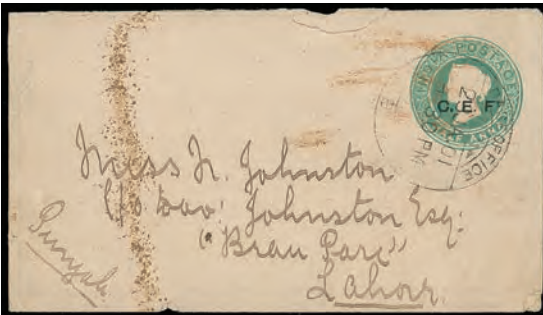 INDIA POSTAGE
C. E. F.
OFFICE
PM
Miss N. Johnston
C/o Johnston Esq:
"Brau
Lahore.
Punjab